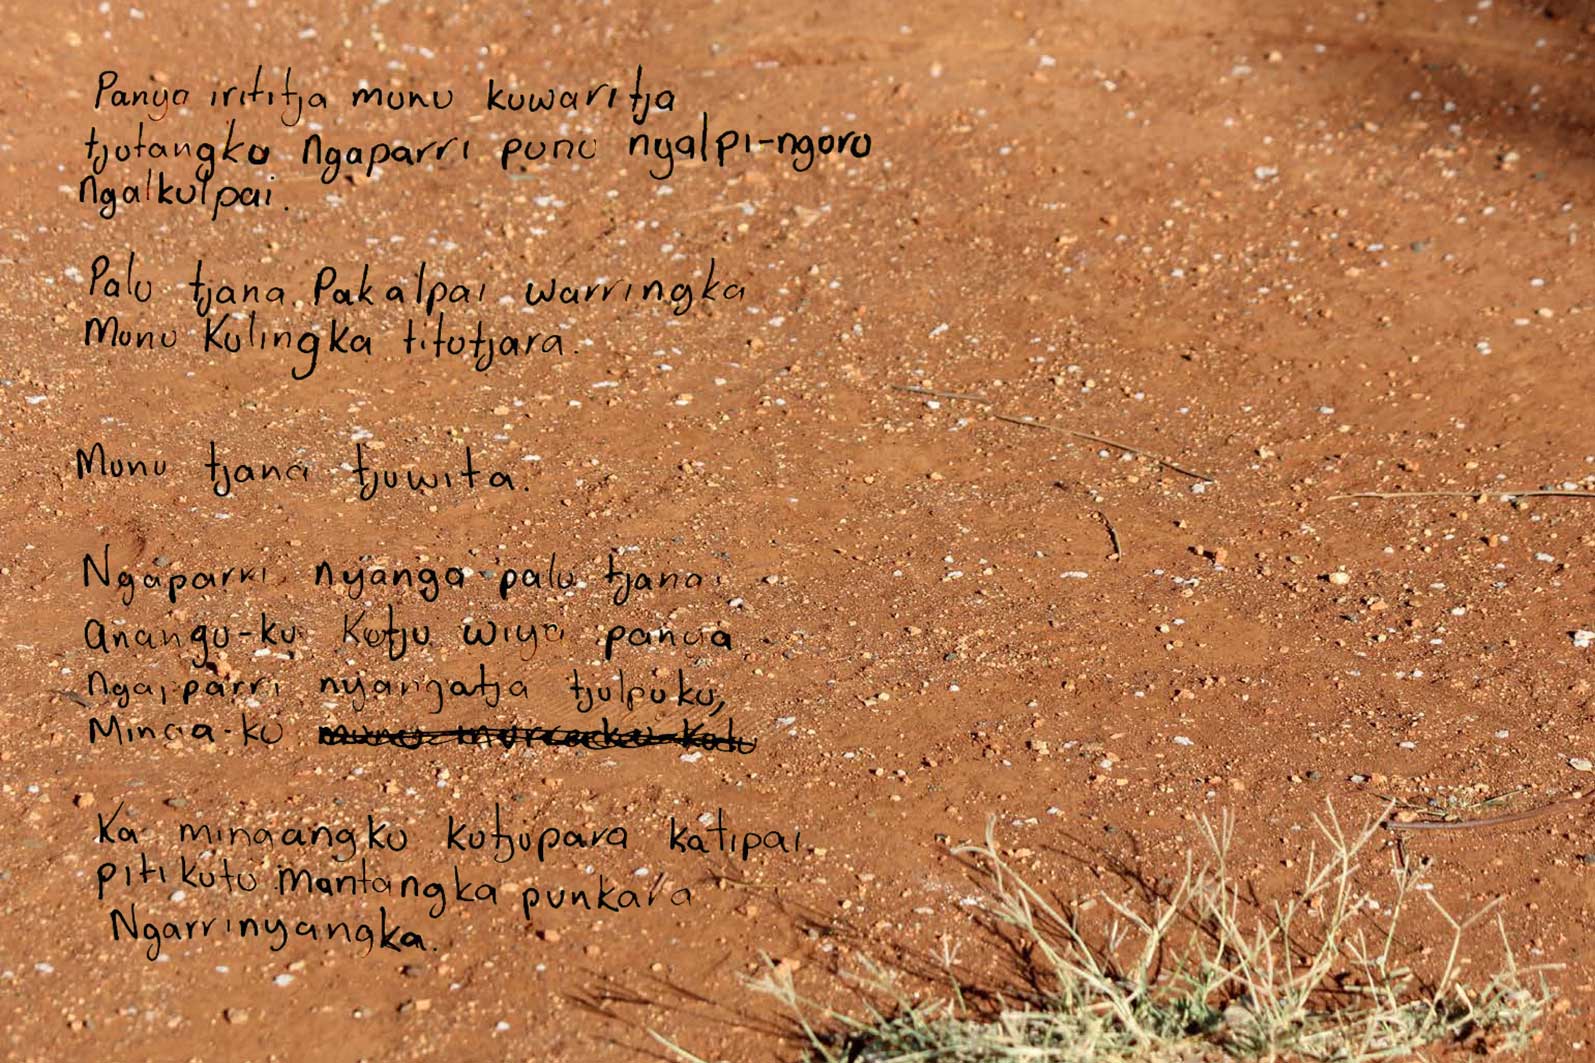 Panya irititja munu kuwaritja
tjutangku Ngaparri punu nyalpi-nguru
Ngalkulpai.
Palu tjana Pakalpai warringka
Munu Kulingka titutjara.
Munu tjana tjuwita.
Ngaparri nyanga palu tjana
anangu-ku Kutju wiya panya
Ngaparri nyangatja tjulpuku,
Minga-ku
Ka mingangku kutjupara katipai
pitikutu mantangka punkara
Ngarrinyangka.